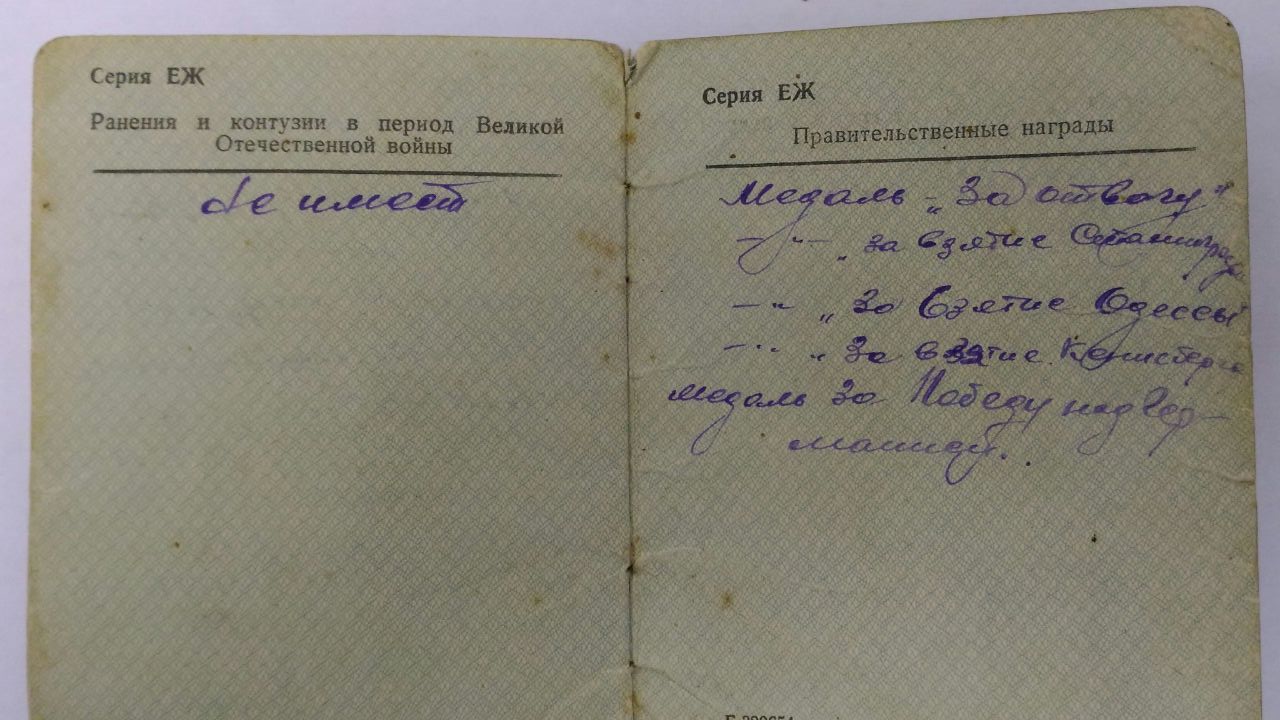 Серия ЕЖ
Ранения и контузии в период Великой
Отечественной войны
Не имеет
Серия ЕЖ
Правительственные награды
Медаль - „За отвагу"
—"— „за взятие Сталинграда
—"— „За взятие Одессы"
—"— „За взятие
Медаль За Победу над Гер-
манией.